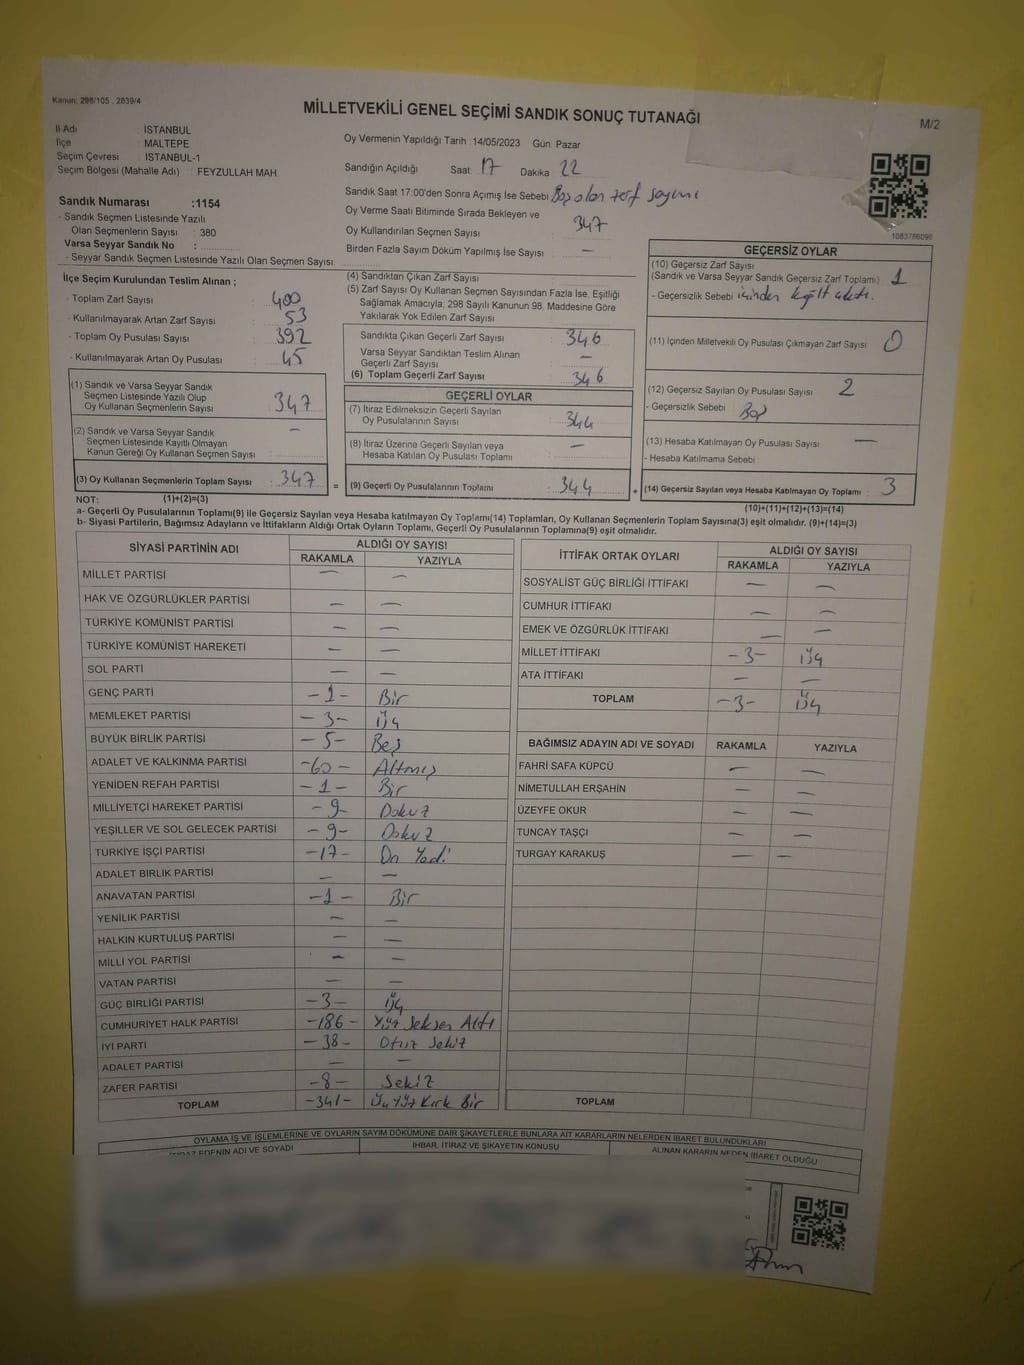 Kanun: 298/105 , 2839/4
MİLLETVEKİLİ GENEL SEÇİMİ SANDIK SONUÇ TUTANAĞI
M/2
İl Adı : İSTANBUL
İlçe : MALTEPE
Seçim Çevresi : İSTANBUL-1
Seçim Bölgesi (Mahalle Adı) : FEYZULLAH MAH.
Sandık Numarası :1154
- Sandık Seçmen Listesinde Yazılı
Olan Seçmenlerin Sayısı : 380
Varsa Seyyar Sandık No :
- Seyyar Sandık Seçmen Listesinde Yazılı Olan Seçmen Sayısı:
Oy Vermenin Yapıldığı Tarih :14/05/2023 Gün: Pazar
Sandığın Açıldığı Saat: 17 Dakika 22
Sandık Saat 17:00'den Sonra Açımış İse Sebebi Boş olan zarf sayımı
Oy Verme Saati Bitiminde Sırada Bekleyen ve
Oy Kullandırılan Seçmen Sayısı : 347
Birden Fazla Sayım Döküm Yapılmış İse Sayısı : —
1083786090
İlçe Seçim Kurulundan Teslim Alınan ;
- Toplam Zarf Sayısı : 400
- Kullanılmayarak Artan Zarf Sayısı : 53
- Toplam Oy Pusulası Sayısı : 392
- Kullanılmayarak Artan Oy Pusulası : 45
(1) Sandık ve Varsa Seyyar Sandık
Seçmen Listesinde Yazılı Olup
Oy Kullanan Seçmenlerin Sayısı : 347
(2) Sandık ve Varsa Seyyar Sandık
Seçmen Listesinde Kayıtlı Olmayan
Kanun Gereği Oy Kullanan Seçmen Sayısı : —
(3) Oy Kullanan Seçmenlerin Toplam Sayısı : 347
(4) Sandıktan Çıkan Zarf Sayısı :
(5) Zarf Sayısı Oy Kullanan Seçmen Sayısından Fazla İse, Eşitliği
Sağlamak Amacıyla; 298 Sayılı Kanunun 98. Maddesine Göre
Yakılarak Yok Edilen Zarf Sayısı :
Sandıkta Çıkan Geçerli Zarf Sayısı : 346
Varsa Seyyar Sandıktan Teslim Alınan
Geçerli Zarf Sayısı : —
(6) Toplam Geçerli Zarf Sayısı : 346
GEÇERLİ OYLAR
(7) İtiraz Edilmeksizin Geçerli Sayılan
Oy Pusulalarının Sayısı : 344
(8) İtiraz Üzerine Geçerli Sayılan veya
Hesaba Katılan Oy Pusulası Toplamı : —
= (9) Geçerli Oy Pusulalarının Toplamı : 344
GEÇERSİZ OYLAR
(10) Geçersiz Zarf Sayısı
(Sandık ve Varsa Seyyar Sandık Geçersiz Zarf Toplamı) : 1
- Geçersizlik Sebebi : içinden kağıt çıktı.
(11) İçinden Milletvekili Oy Pusulası Çıkmayan Zarf Sayısı : 0
(12) Geçersiz Sayılan Oy Pusulası Sayısı : 2
- Geçersizlik Sebebi : Boş
(13) Hesaba Katılmayan Oy Pusulası Sayısı : —
- Hesaba Katılmama Sebebi :
+ (14) Geçersiz Sayılan veya Hesaba Katılmayan Oy Toplamı : 3
NOT: (1)+(2)=(3)
(10)+(11)+(12)+(13)=(14)
a- Geçerli Oy Pusulalarının Toplamı(9) ile Geçersiz Sayılan veya Hesaba katılmayan Oy Toplamı(14) Toplamları, Oy Kullanan Seçmenlerin Toplam Sayısına(3) eşit olmalıdır. (9)+(14)=(3)
b- Siyasi Partilerin, Bağımsız Adayların ve İttifakların Aldığı Ortak Oyların Toplamı, Geçerli Oy Pusulalarının Toplamına(9) eşit olmalıdır.
SİYASİ PARTİNİN ADI ALDIĞI OY SAYISI
RAKAMLA YAZIYLA
MİLLET PARTİSİ — —
HAK VE ÖZGÜRLÜKLER PARTİSİ — —
TÜRKİYE KOMÜNİST PARTİSİ — —
TÜRKİYE KOMÜNİST HAREKETİ — —
SOL PARTİ — —
GENÇ PARTİ -1- Bir
MEMLEKET PARTİSİ -3- Üç
BÜYÜK BİRLİK PARTİSİ -5- Beş
ADALET VE KALKINMA PARTİSİ -60- Altmış
YENİDEN REFAH PARTİSİ -1- Bir
MİLLİYETÇİ HAREKET PARTİSİ -9- Dokuz
YEŞİLLER VE SOL GELECEK PARTİSİ -9- Dokuz
TÜRKİYE İŞÇİ PARTİSİ -17- On Yedi
ADALET BİRLİK PARTİSİ — —
ANAVATAN PARTİSİ -1- Bir
YENİLİK PARTİSİ — —
HALKIN KURTULUŞ PARTİSİ — —
MİLLİ YOL PARTİSİ — —
VATAN PARTİSİ — —
GÜÇ BİRLİĞİ PARTİSİ -3- Üç
CUMHURİYET HALK PARTİSİ -186- Yüz Seksen Altı
İYİ PARTİ -38- Otuz Sekiz
ADALET PARTİSİ — —
ZAFER PARTİSİ -8- Sekiz
TOPLAM -341- Üç Yüz Kırk Bir
İTTİFAK ORTAK OYLARI ALDIĞI OY SAYISI
RAKAMLA YAZIYLA
SOSYALİST GÜÇ BİRLİĞİ İTTİFAKI — —
CUMHUR İTTİFAKI — —
EMEK VE ÖZGÜRLÜK İTTİFAKI — —
MİLLET İTTİFAKI -3- Üç
ATA İTTİFAKI — —
TOPLAM -3- Üç
BAĞIMSIZ ADAYIN ADI VE SOYADI RAKAMLA YAZIYLA
FAHRİ SAFA KÜPCÜ — —
NİMETULLAH ERŞAHİN — —
ÜZEYFE OKUR — —
TUNCAY TAŞÇI — —
TURGAY KARAKUŞ — —
TOPLAM
OYLAMA İŞ VE İŞLEMLERİNE VE OYLARIN SAYIM DÖKÜMÜNE DAİR ŞİKAYETLERLE BUNLARA AİT KARARLARIN NELERDEN İBARET BULUNDUKLARI
İTİRAZ EDENİN ADI VE SOYADI İHBAR, İTİRAZ VE ŞİKAYETİN KONUSU ALINAN KARARIN NEDEN İBARET OLDUĞU